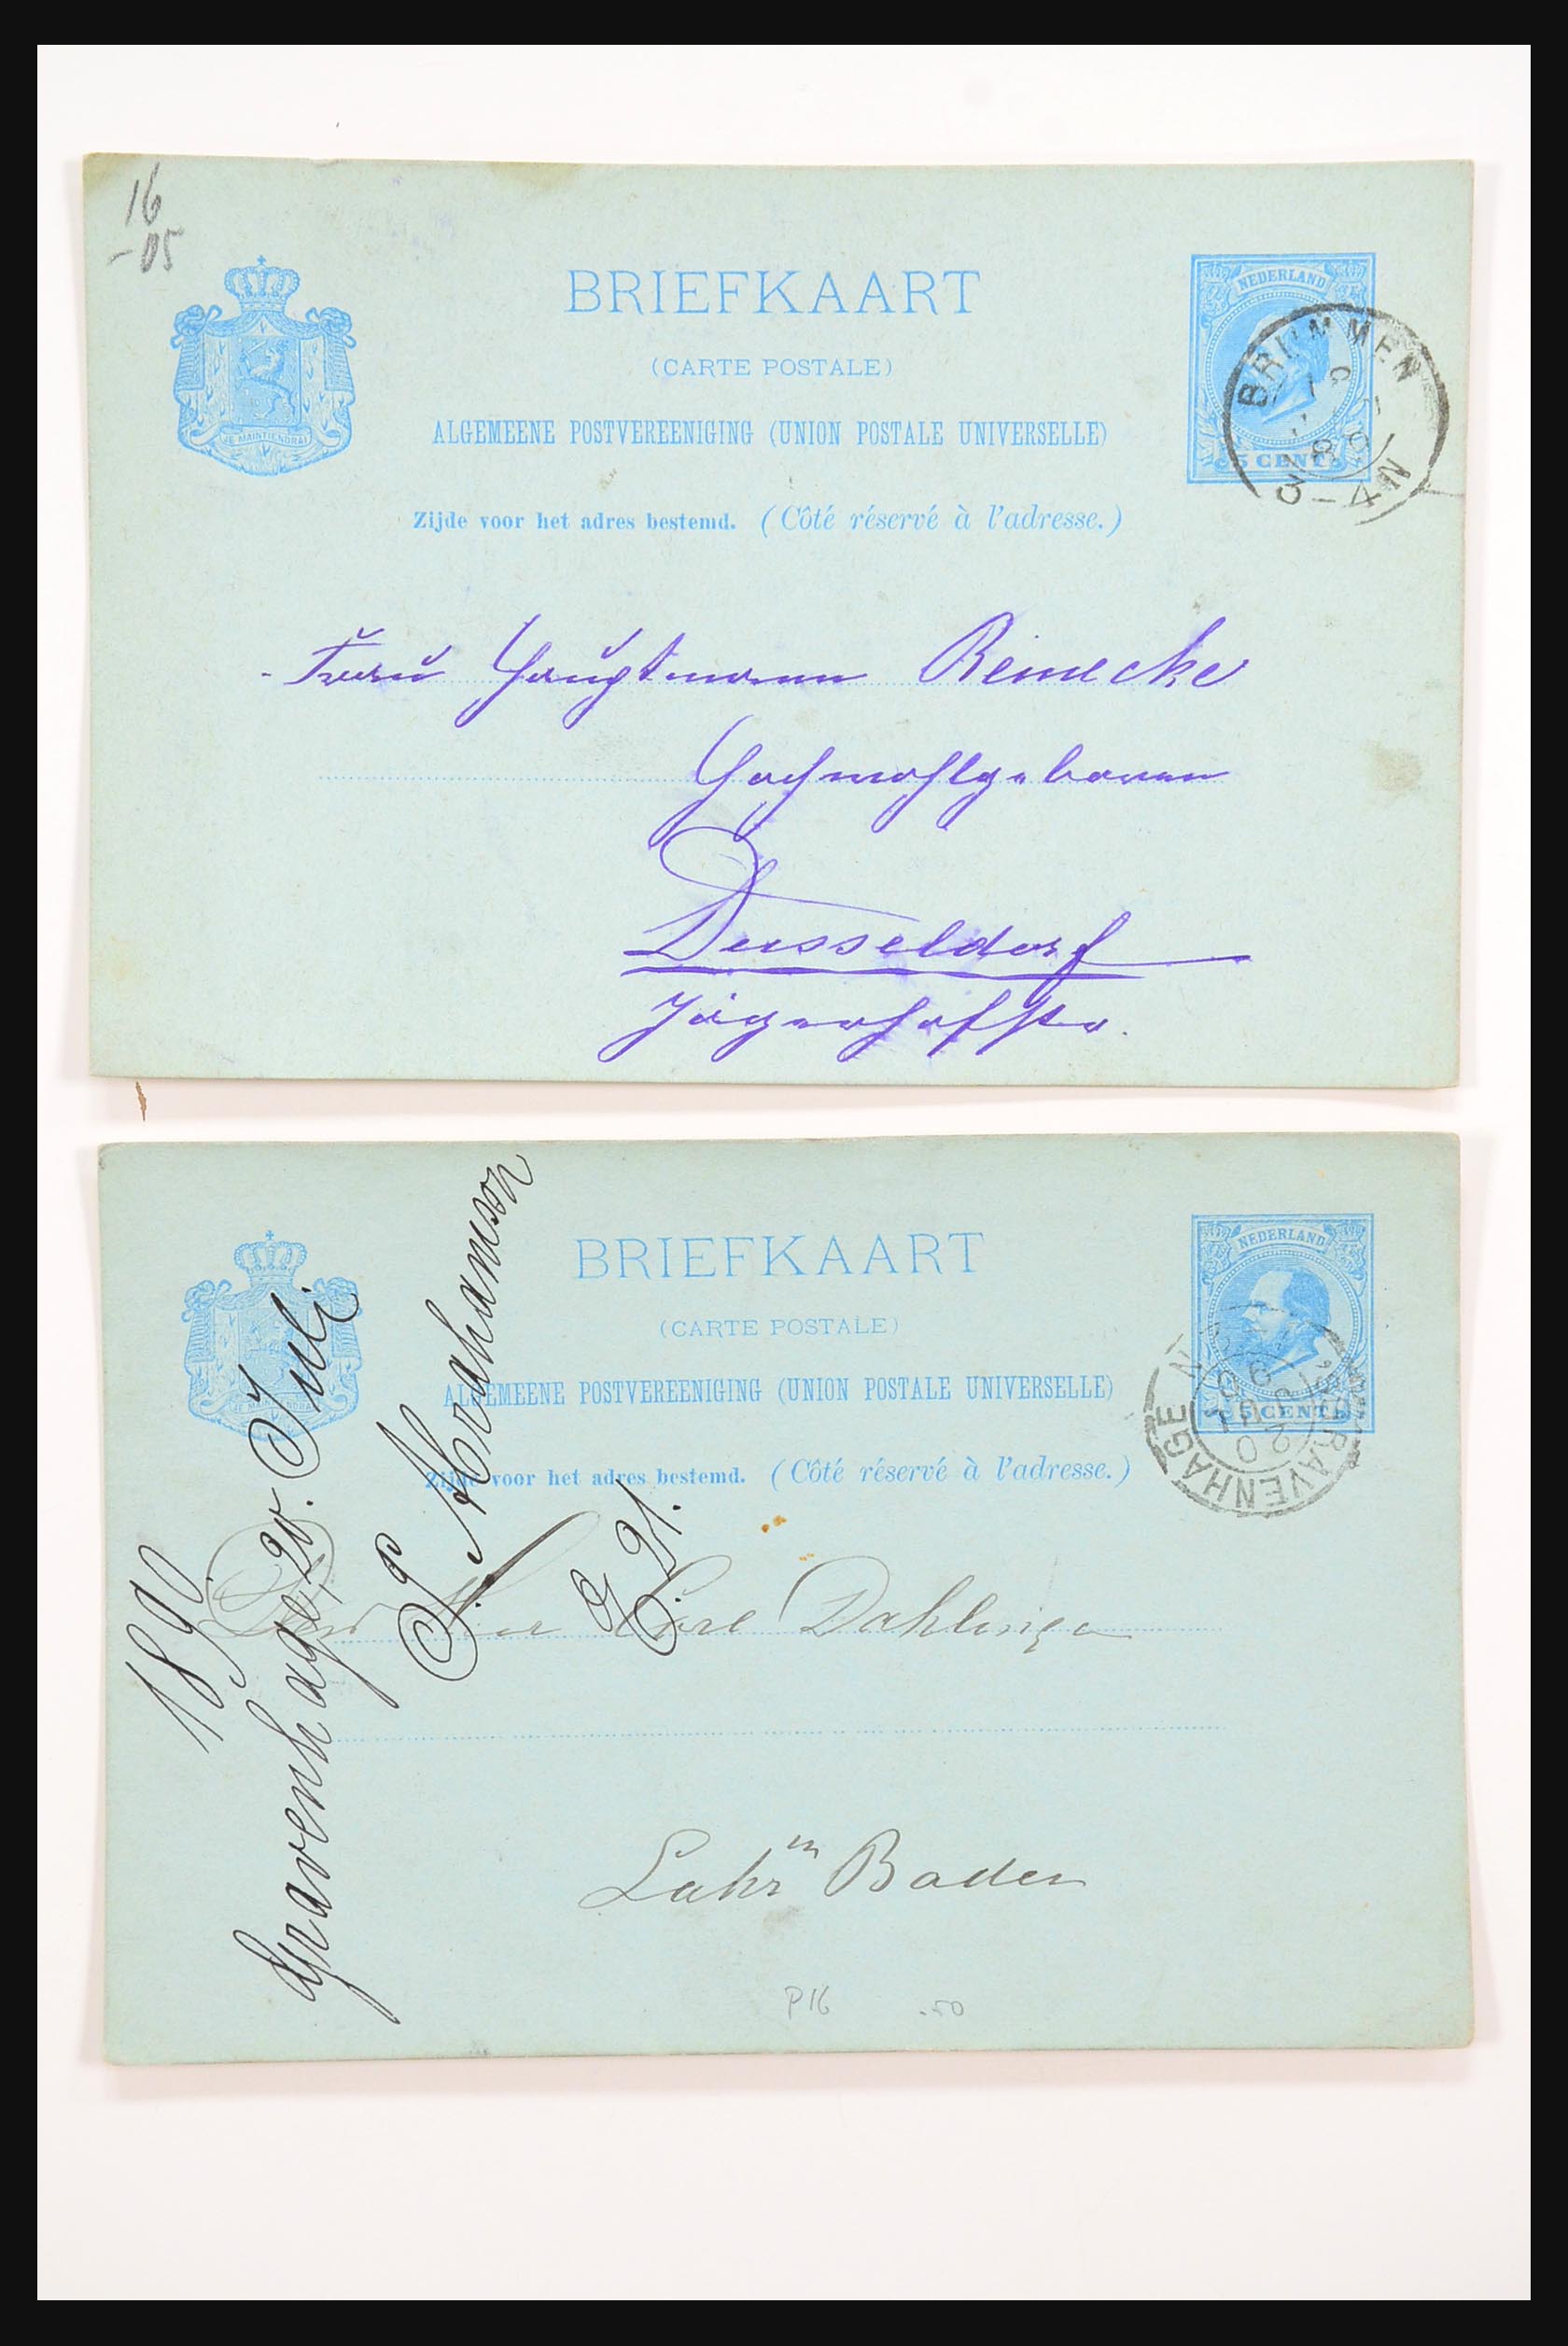 16
-05
BRIEFKAART
(CARTE POSTALE)
ALGEMEENE POSTVEREENIGING (UNION POSTALE UNIVERSELLE)
Zijde voor het adres bestemd. (Côté réservé à l'adresse.)
JE MAINTIENDRAI
NEDERLAND
5 CENT
BRUMMEN
Hauptmann Reinecke
Hochwohlgeboren
Dusseldorf
Jägerhofstr.
BRIEFKAART
(CARTE POSTALE)
ALGEMEENE POSTVEREENIGING (UNION POSTALE UNIVERSELLE)
Zijde voor het adres bestemd. (Côté réservé à l'adresse.)
JE MAINTIENDRAI
NEDERLAND
5 CENT
'S GRAVENHAGE
20 JUL 90
1890.
Gravenhage, 20. Juli
S. Abrahamson
Dahlinger
Lahr in Baden
P16 .50